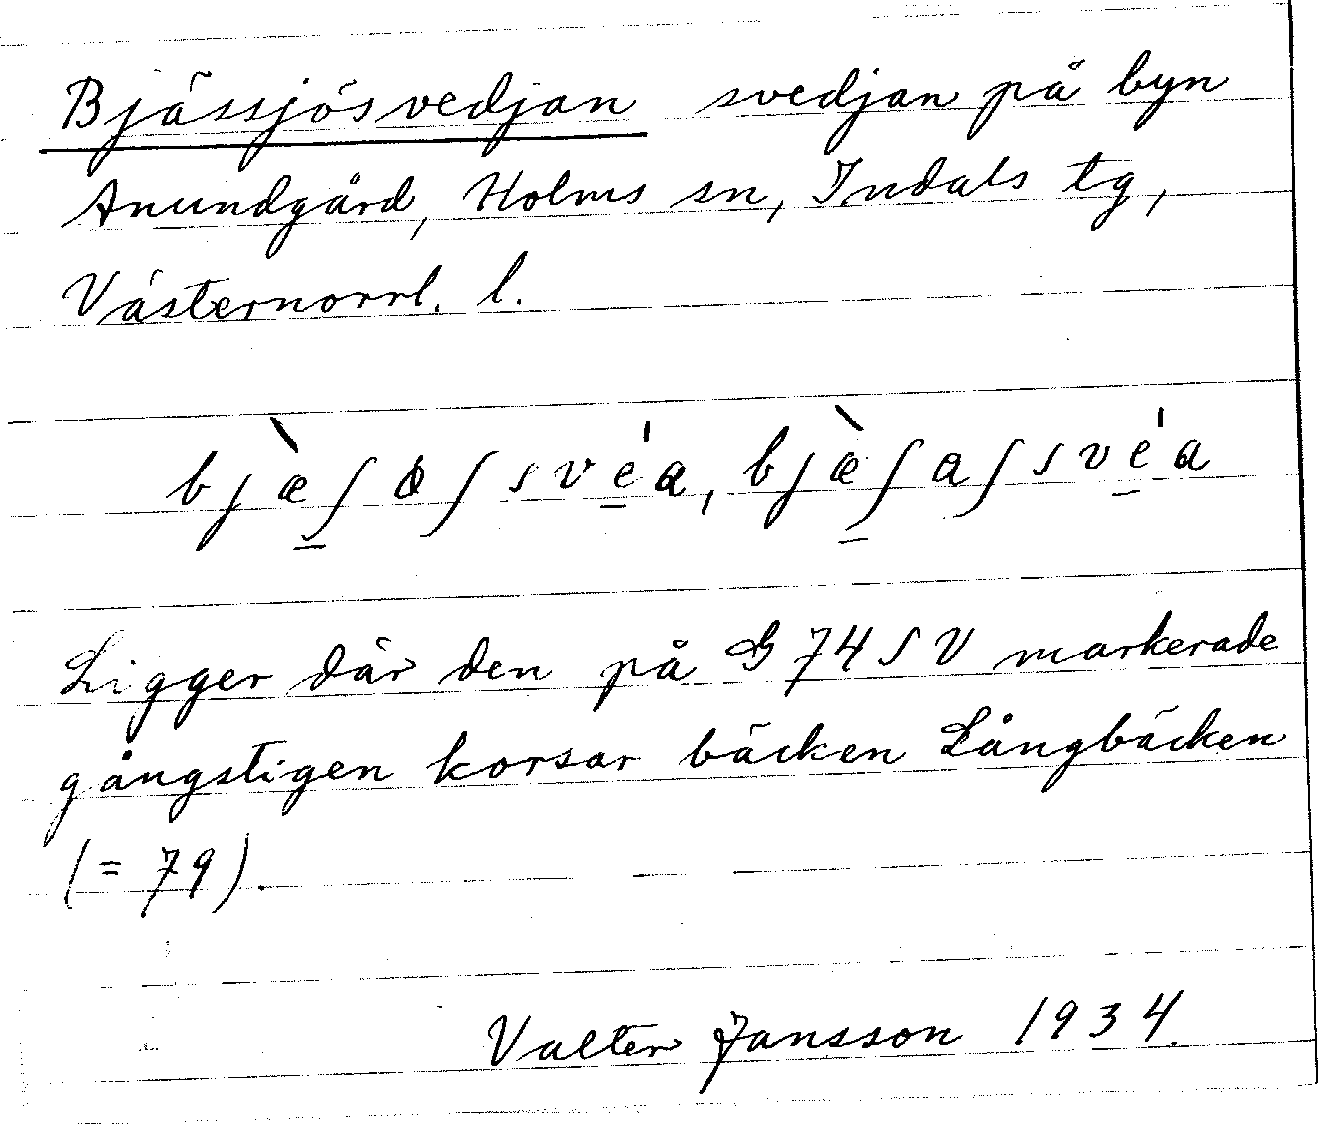 Bjässjösvedjan svedjan på byn
Anundgård, Holms sn, Indals tg,
Västernorrl. l.
bjæ̀ʃɵʃsvéa, bjæ̀ʃaʃsvéa
Ligger där den på G 74 SV markerade
gångstigen korsar bäcken Långbäcken
(= 79).
Valter Jansson 1934.